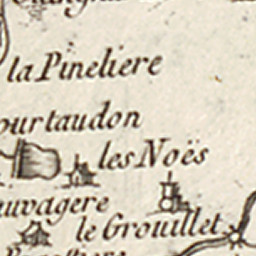 la Pineliere
ourtaudon
les Noës
auvagere
le Grouillet